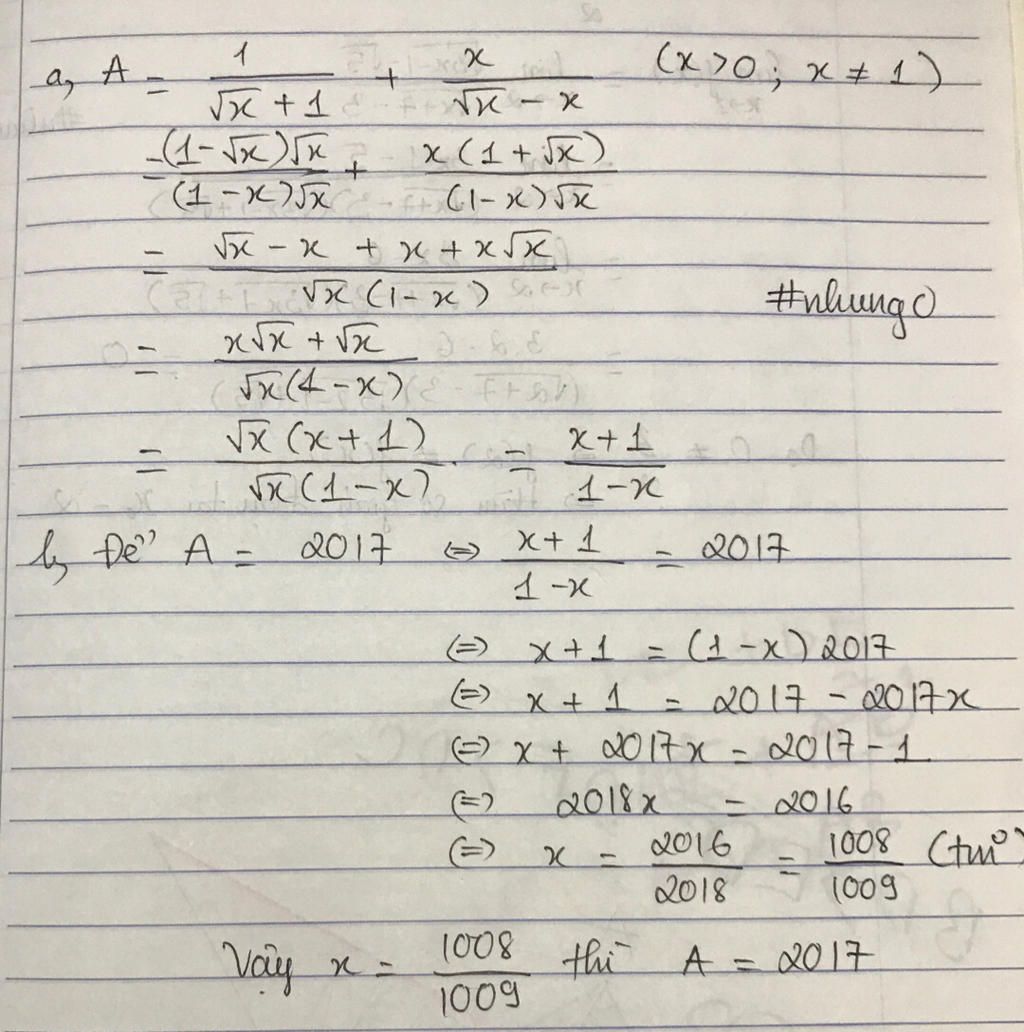 a, A = 1/(√x + 1) + x/(√x - x) (x > 0 ; x ≠ 1)
= (1-√x)√x/((1-x)√x) + x(1+√x)/((1-x)√x)
= (√x - x + x + x√x)/(√x(1-x))
#nhung
= (x√x + √x)/(√x(1-x))
= √x(x+1)/(√x(1-x)). = (x+1)/(1-x)
b, Để A = 2017 ⇔ (x+1)/(1-x) = 2017
⇔ x+1 = (1-x)2017
⇔ x + 1 = 2017 - 2017x
⇔ x + 2017x = 2017 - 1
⇔ 2018x = 2016
⇔ x = 2016/2018 = 1008/1009 (tm)
Vậy x = 1008/1009 thì A = 2017